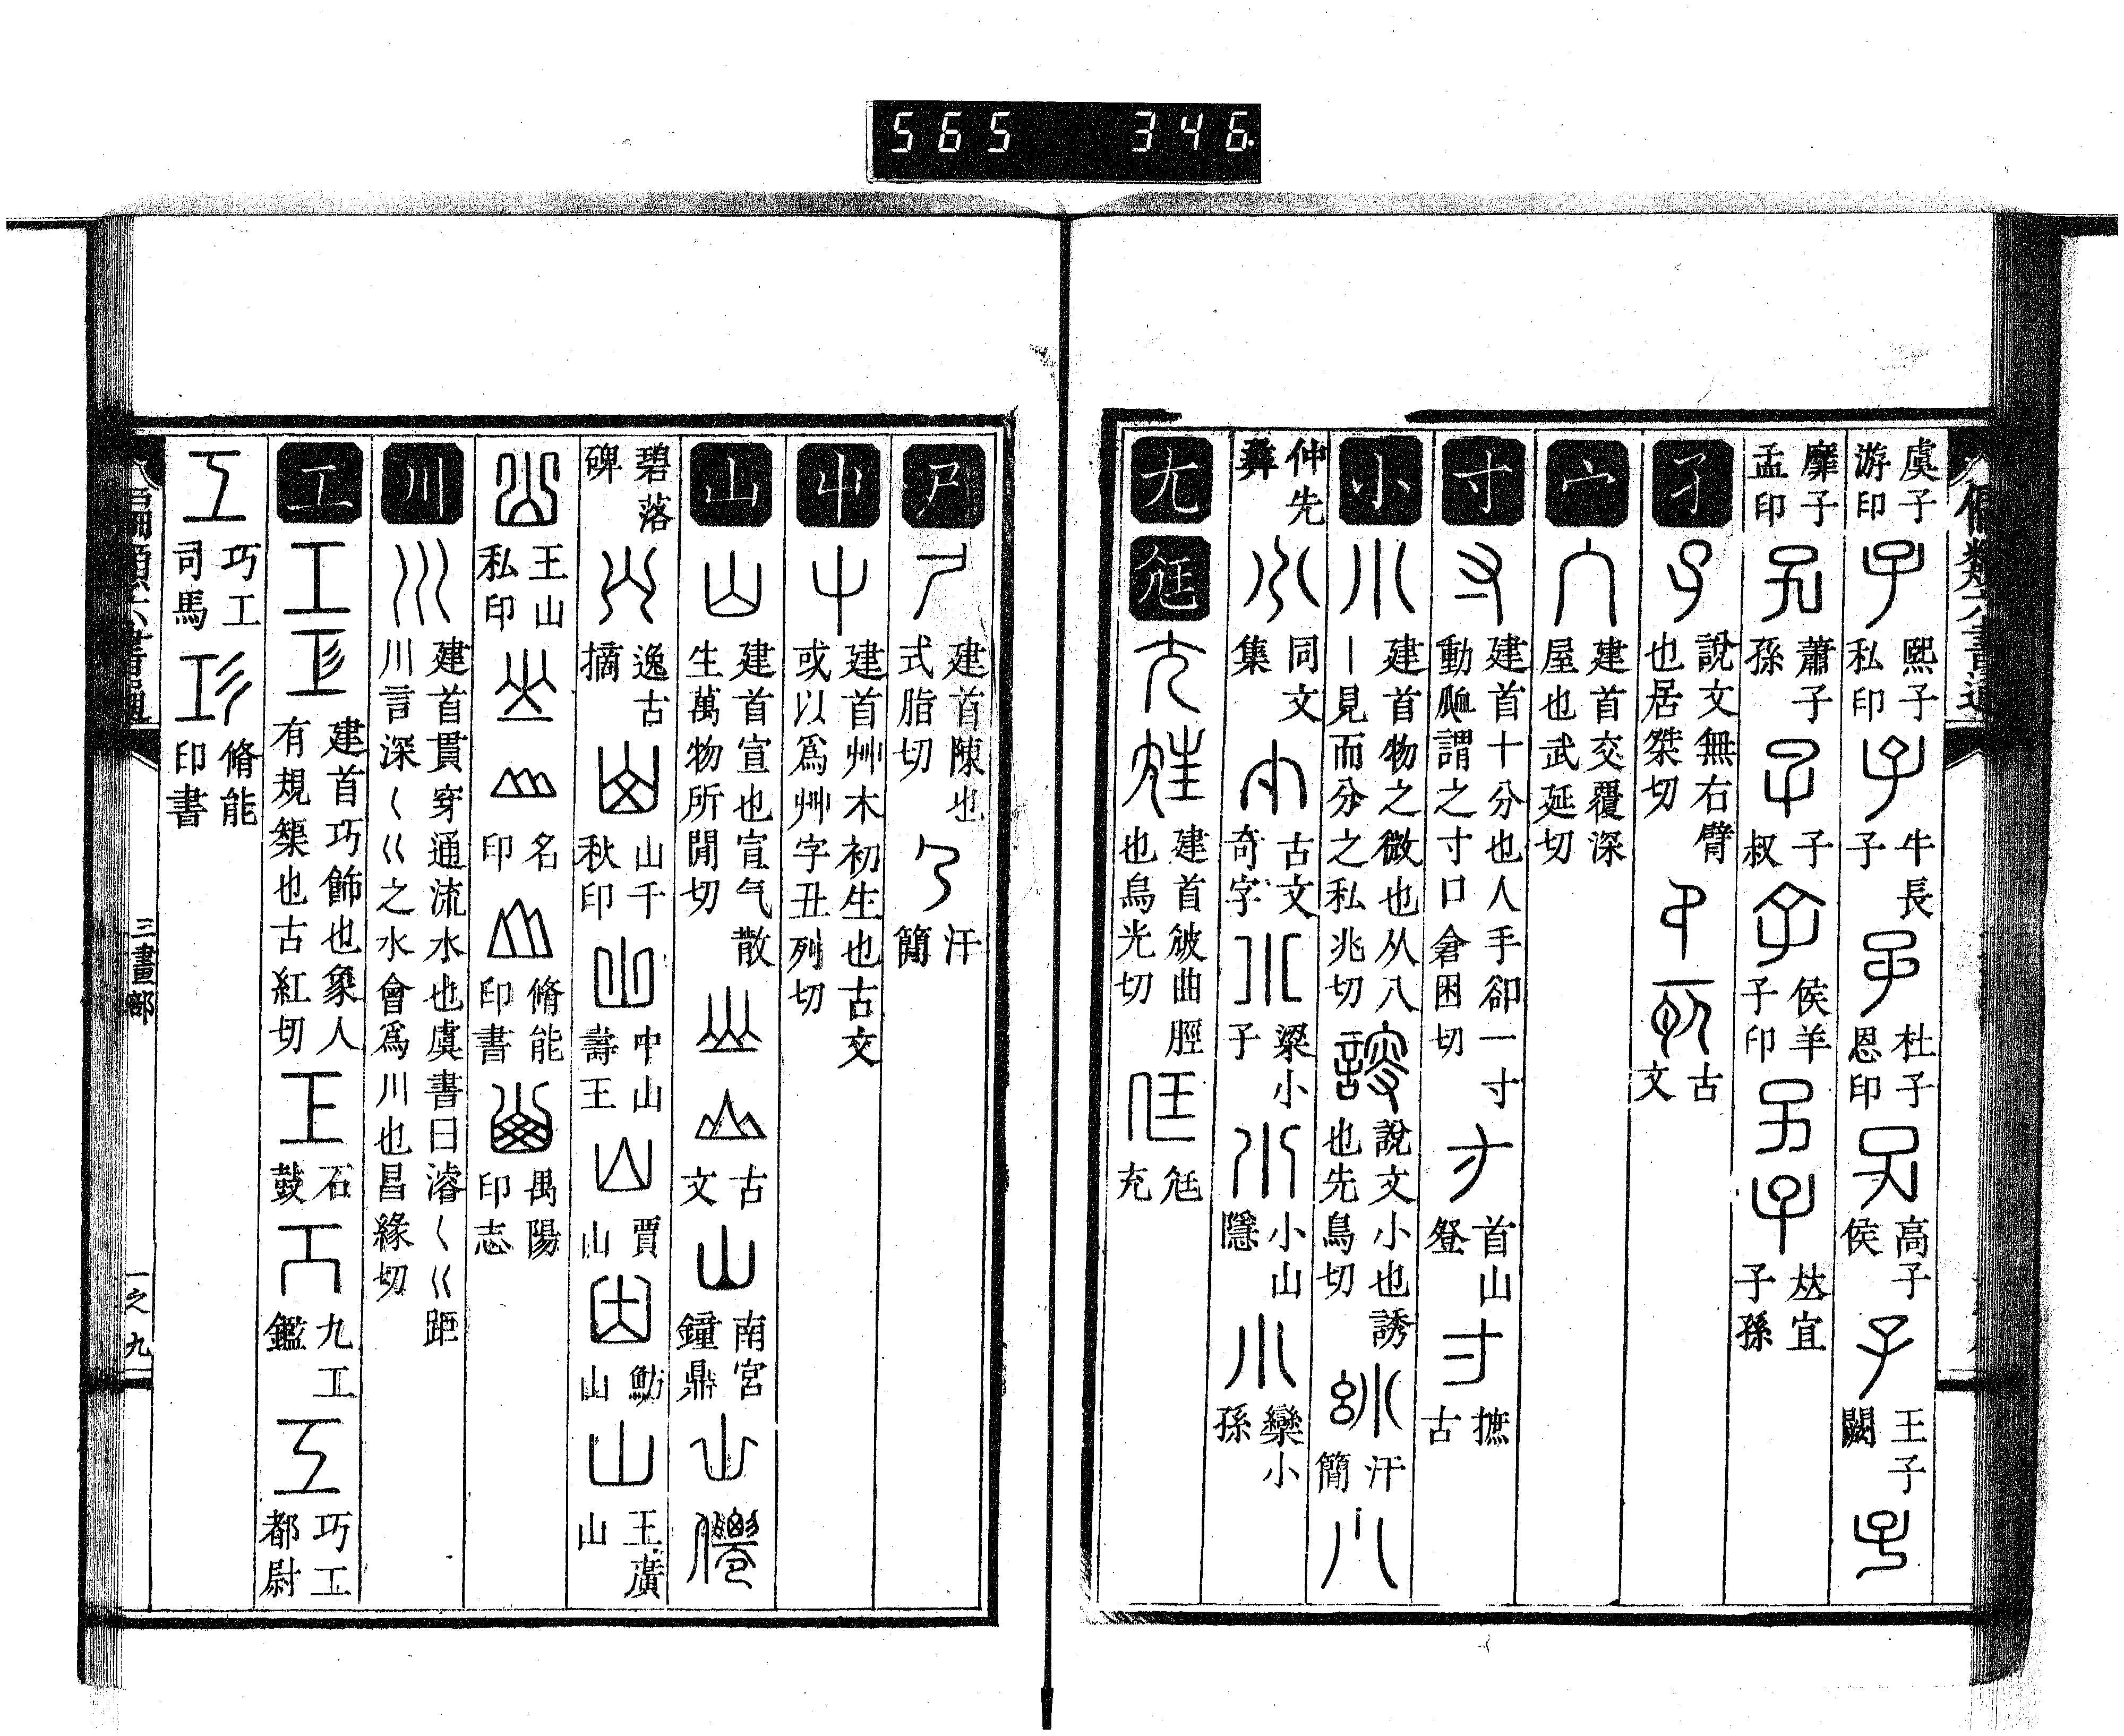 565 346
虞子游印 熙子私印 牛長子 杜子恩印 高子侯 王子闕
靡子孟印 蕭子孫 子叔 侯羊子印 㳒宜子孫
孑 說文無右臂也居桀切 古文
宀 建首交覆深屋也武延切
寸 建首十分也人手卻一寸動𧖴謂之寸口倉困切 首山登 摭古
小 建首物之微也从八丨見而分之私兆切 說文小也誘也先鳥切 汗簡
仲先彝 同文集 古文奇字 梁小子 小山隱 欒小孫
尢 尪 建首彼曲脛也烏光切 尪充
尸 建首陳也式脂切 汗簡
屮 建首艸木初生也古文或以為艸字丑列切
山 建首宣也宣气散生萬物所閒切 古文 南宮鐘鼎
碧落碑 逸古摘 山千秋印 中山壽王 賈山 鮎山 王廣山
王山私印 名印 脩能印書 禺陽印志
川 建首貫穿通流水也虞書曰濬〈巜距川言深〈巜之水會為川也昌緣切
工 建首巧飾也象人有規榘也古紅切 石鼓 九工鑑 巧工都尉
巧工司馬 脩能印書
三畫部
一之九